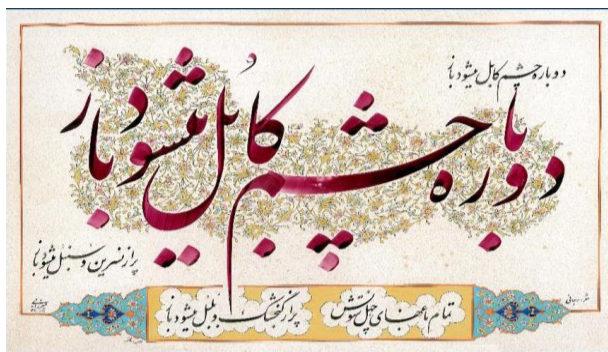 دوباره چشم کابل میشود باز
دوباره چشم کابل میشود باز
پر از نسرین و سنبل میشود باز
تمام باغهای چهل ستونش پر از گنجشک و بلبل میشود باز